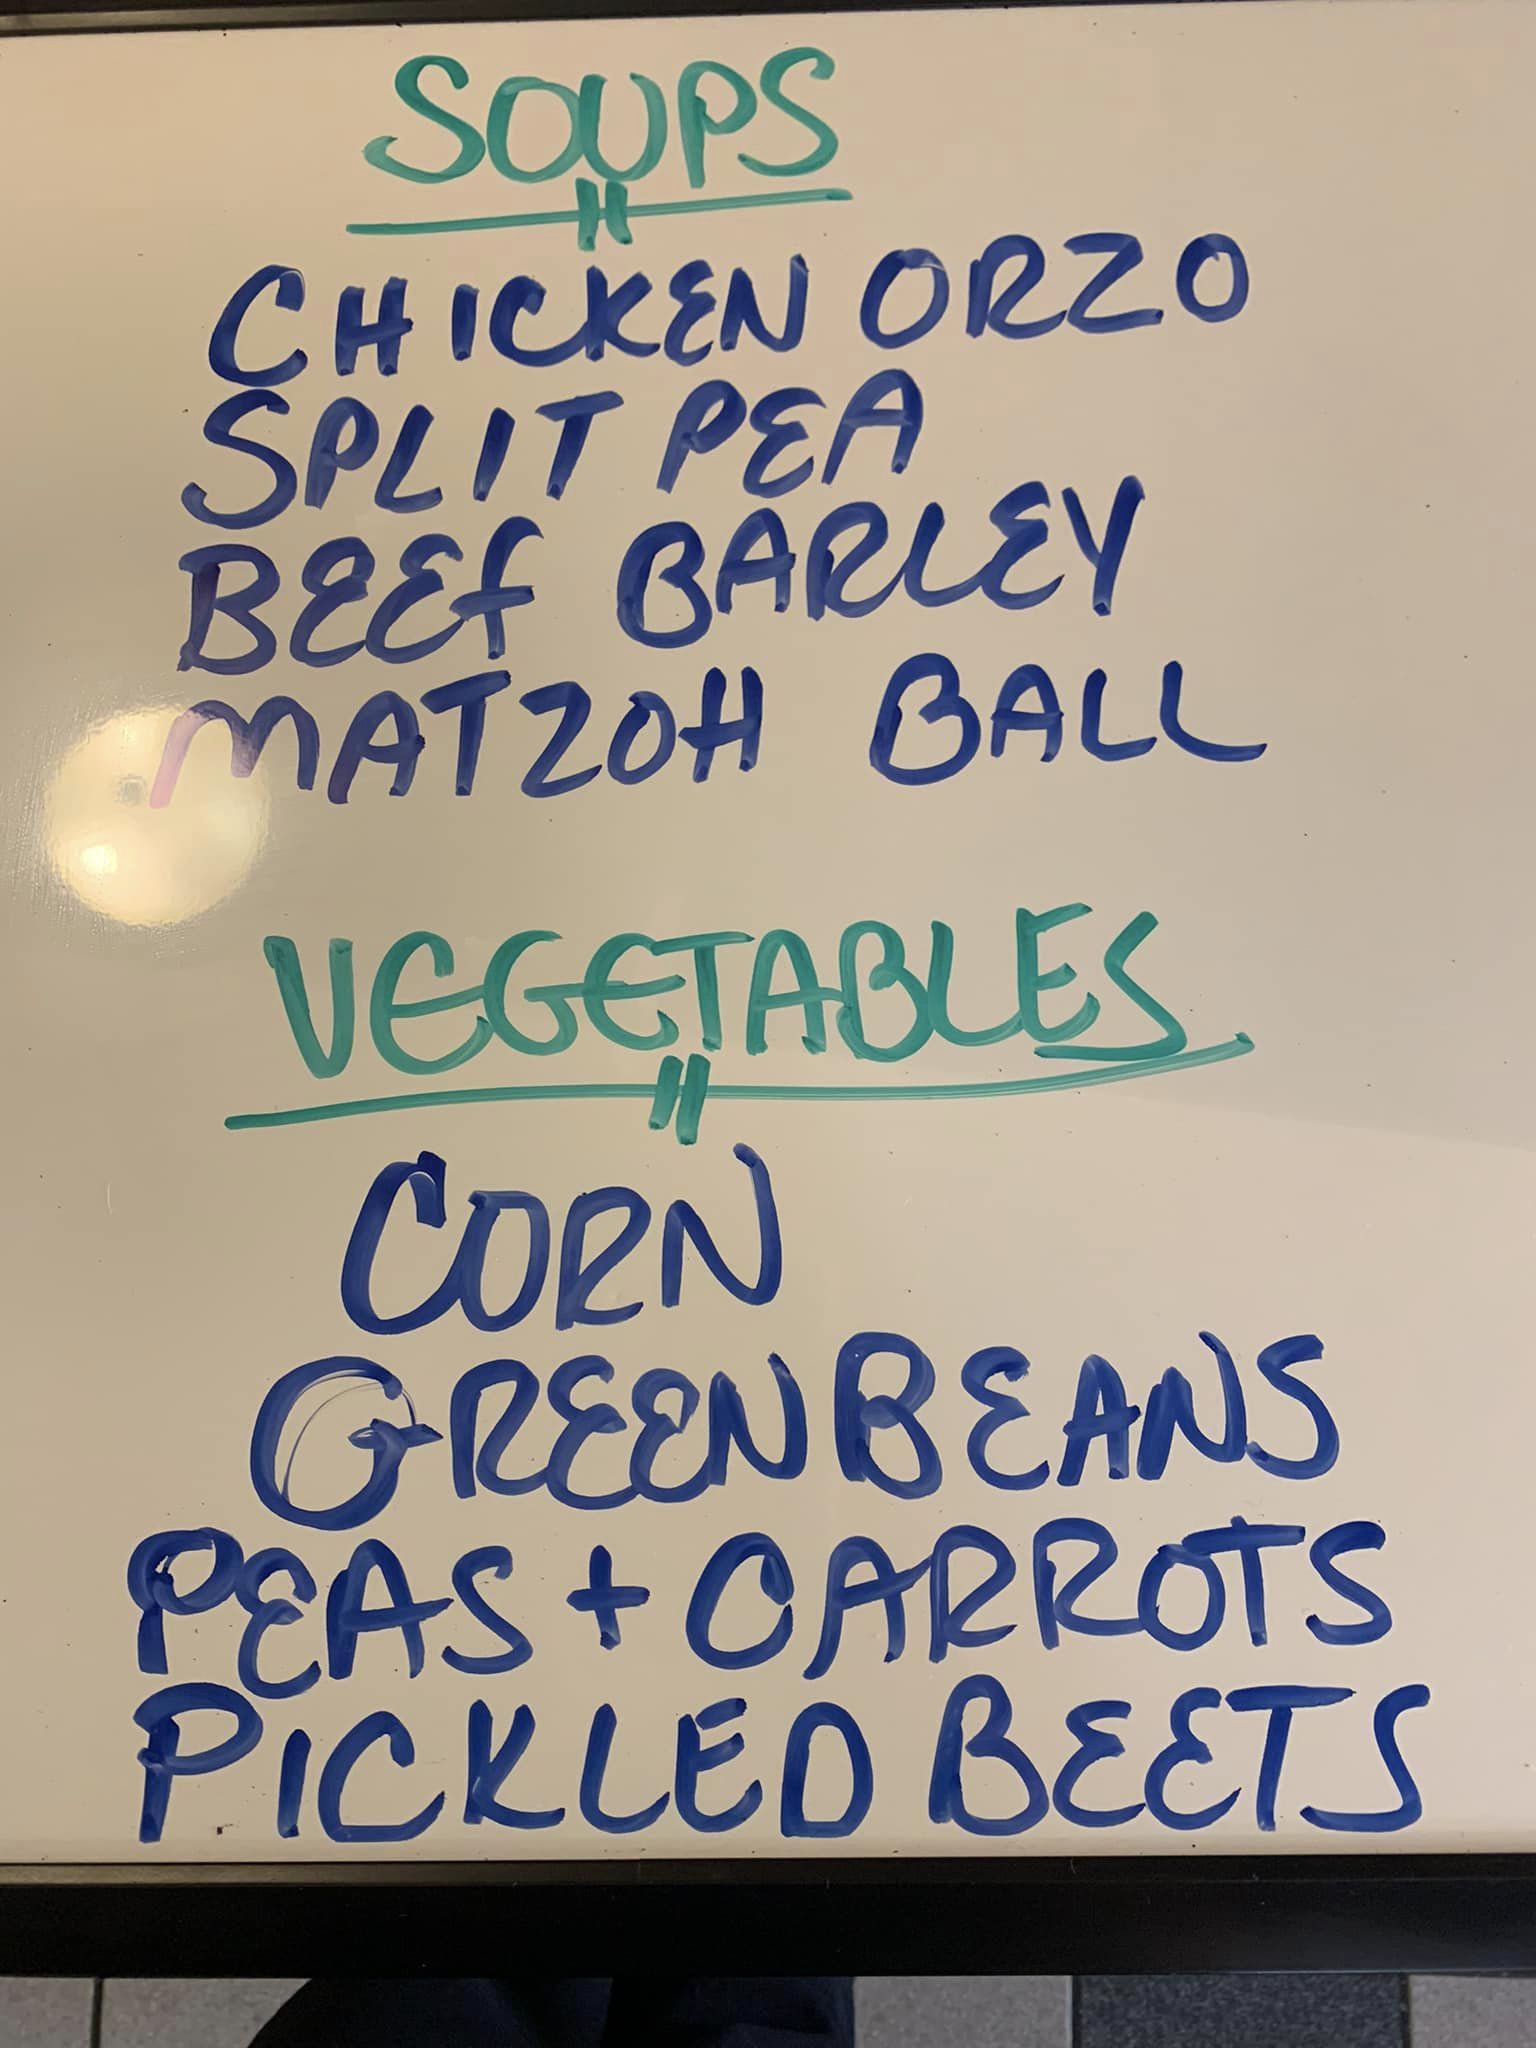 SOUPS
CHICKEN ORZO
SPLIT PEA
BEEF BARLEY
MATZOH BALL
VEGETABLES
CORN
GREEN BEANS
PEAS + CARROTS
PICKLED BEETS